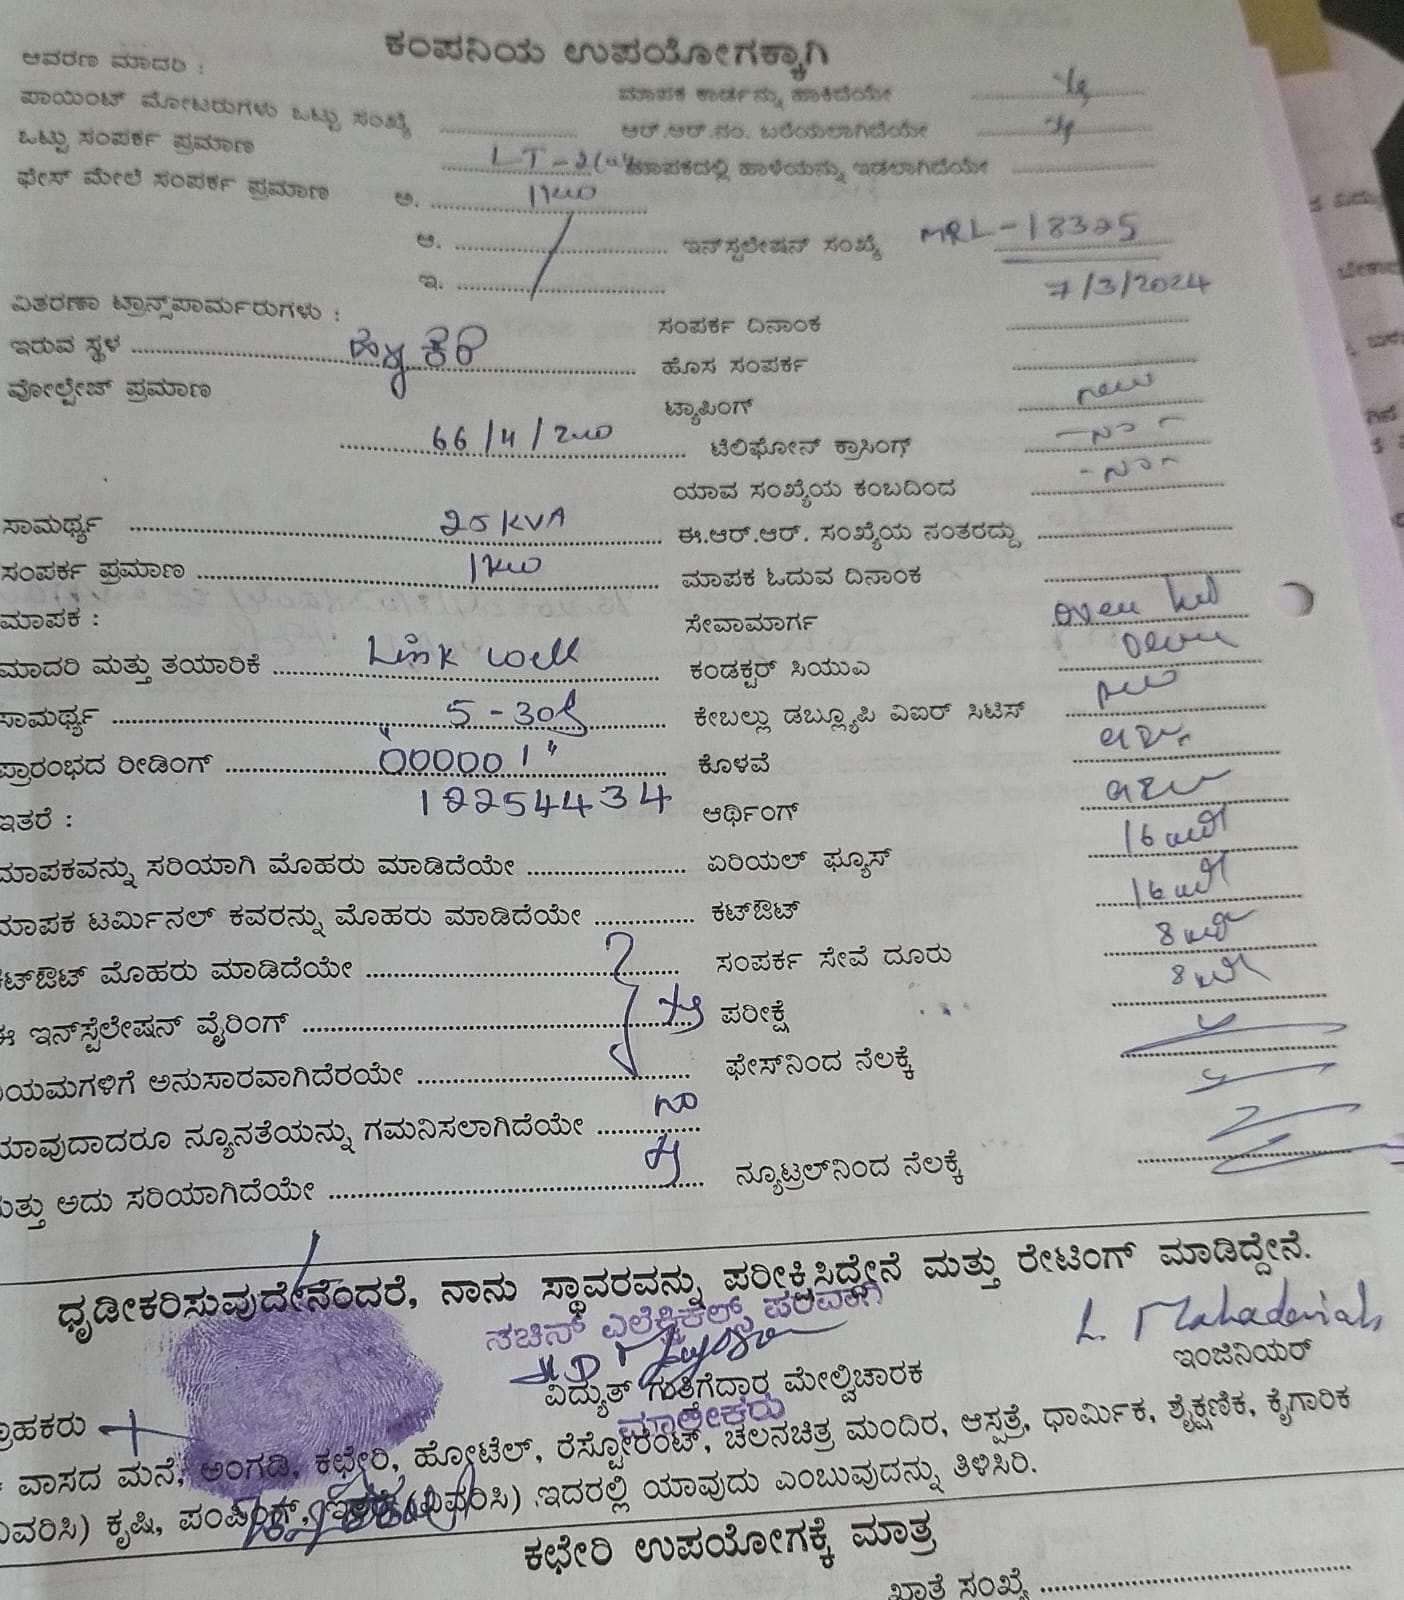 ಕಂಪನಿಯ ಉಪಯೋಗಕ್ಕಾಗಿ
ಆವರಣ ಮಾದರಿ :
ಪಾಯಿಂಟ್ ಮೋಟರುಗಳು ಒಟ್ಟು ಸಂಖ್ಯೆ ............ ಮಾಪಕ ಕಾರ್ಡನ್ನು ಹಾಕಿದೆಯೇ ............
ಒಟ್ಟು ಸಂಪರ್ಕ ಪ್ರಮಾಣ LT-2(a) ಆರ್.ಆರ್.ನಂ. ಬರೆಯಲಾಗಿದೆಯೇ ............
ಫೇಸ್ ಮೇಲೆ ಸಂಪರ್ಕ ಪ್ರಮಾಣ ಅ. 1KW ಮಾಪಕದಲ್ಲಿ ಹಾಳೆಯನ್ನು ಇಡಲಾಗಿದೆಯೇ ............
ಆ. ............ ಇನ್‌ಸ್ಟಲೇಷನ್ ಸಂಖ್ಯೆ MRL-18325
ಇ. ............ 7/3/2024
ವಿತರಣಾ ಟ್ರಾನ್ಸ್‌ಫಾರ್ಮರುಗಳು : ಸಂಪರ್ಕ ದಿನಾಂಕ ............
ಇರುವ ಸ್ಥಳ ............ ಹೊಸ ಸಂಪರ್ಕ ............
ವೋಲ್ಟೇಜ್ ಪ್ರಮಾಣ ಟ್ಯಾಪಿಂಗ್ new
............ ಟೆಲಿಫೋನ್ ಕ್ರಾಸಿಂಗ್ -No-
ಯಾವ ಸಂಖ್ಯೆಯ ಕಂಬದಿಂದ -No-
ಸಾಮರ್ಥ್ಯ 25 KVA ಈ.ಆರ್.ಆರ್. ಸಂಖ್ಯೆಯ ನಂತರದ್ದು ............
ಸಂಪರ್ಕ ಪ್ರಮಾಣ 1KW ಮಾಪಕ ಓದುವ ದಿನಾಂಕ ............
ಮಾಪಕ : ಸೇವಾಮಾರ್ಗ ............
ಮಾದರಿ ಮತ್ತು ತಯಾರಿಕೆ Link well ಕಂಡಕ್ಟರ್ ಸಿಯುಎ ............
ಸಾಮರ್ಥ್ಯ 5-30 ಕೇಬಲ್ಲು ಡಬ್ಲ್ಯೂಪಿ ವಿಐಆರ್ ಸಿಟಿಸ್ ............
ಪ್ರಾರಂಭದ ರೀಡಿಂಗ್ "000001" ಕೊಳವೆ ............
ಇತರೆ : 12254434 ಆರ್ಥಿಂಗ್ ............
ಮಾಪಕವನ್ನು ಸರಿಯಾಗಿ ಮೊಹರು ಮಾಡಿದೆಯೇ ............ ಏರಿಯಲ್ ಫ್ಯೂಸ್ 16
ಮಾಪಕ ಟರ್ಮಿನಲ್ ಕವರನ್ನು ಮೊಹರು ಮಾಡಿದೆಯೇ ............ ಕಟ್‌ಔಟ್ 16
ಕಟ್‌ಔಟ್ ಮೊಹರು ಮಾಡಿದೆಯೇ ............ ಸಂಪರ್ಕ ಸೇವೆ ದೂರು 8
ಈ ಇನ್‌ಸ್ಪೆಲೇಷನ್ ವೈರಿಂಗ್ ............ ಪರೀಕ್ಷೆ 8
ನಿಯಮಗಳಿಗೆ ಅನುಸಾರವಾಗಿದೆರಯೇ ............ ಫೇಸ್‌ನಿಂದ ನೆಲಕ್ಕೆ
ಯಾವುದಾದರೂ ನ್ಯೂನತೆಯನ್ನು ಗಮನಿಸಲಾಗಿದೆಯೇ No
ಮತ್ತು ಅದು ಸರಿಯಾಗಿದೆಯೇ ............ ನ್ಯೂಟ್ರಲ್‌ನಿಂದ ನೆಲಕ್ಕೆ ............
ಧೃಡೀಕರಿಸುವುದೇನೆಂದರೆ, ನಾನು ಸ್ಥಾವರವನ್ನು ಪರೀಕ್ಷಿಸಿದ್ದೇನೆ ಮತ್ತು ರೇಟಿಂಗ್ ಮಾಡಿದ್ದೇನೆ.
ಸಚಿನ್ ಎಲೆಕ್ಟ್ರಿಕಲ್ಸ್ ಪರವಾಗಿ
L. Mahadeviah
ವಿದ್ಯುತ್ ಗುತ್ತಿಗೆದಾರ ಮೇಲ್ವಿಚಾರಕ ಇಂಜಿನಿಯರ್
ಗ್ರಾಹಕರು ಮಾಲೀಕರು
ವಾಸದ ಮನೆ, ಅಂಗಡಿ, ಕಛೇರಿ, ಹೋಟೆಲ್, ರೆಸ್ಟೋರೆಂಟ್, ಚಲನಚಿತ್ರ ಮಂದಿರ, ಆಸ್ಪತ್ರೆ, ಧಾರ್ಮಿಕ, ಶೈಕ್ಷಣಿಕ, ಕೈಗಾರಿಕ
ವಿವರಿಸಿ) ಕೃಷಿ, ಪಂಪಿಂಗ್, ಇತರೆ (ವಿವರಿಸಿ) .ಇದರಲ್ಲಿ ಯಾವುದು ಎಂಬುವುದನ್ನು ತಿಳಿಸಿರಿ.
ಕಛೇರಿ ಉಪಯೋಗಕ್ಕೆ ಮಾತ್ರ
ಖಾತೆ ಸಂಖ್ಯೆ ............